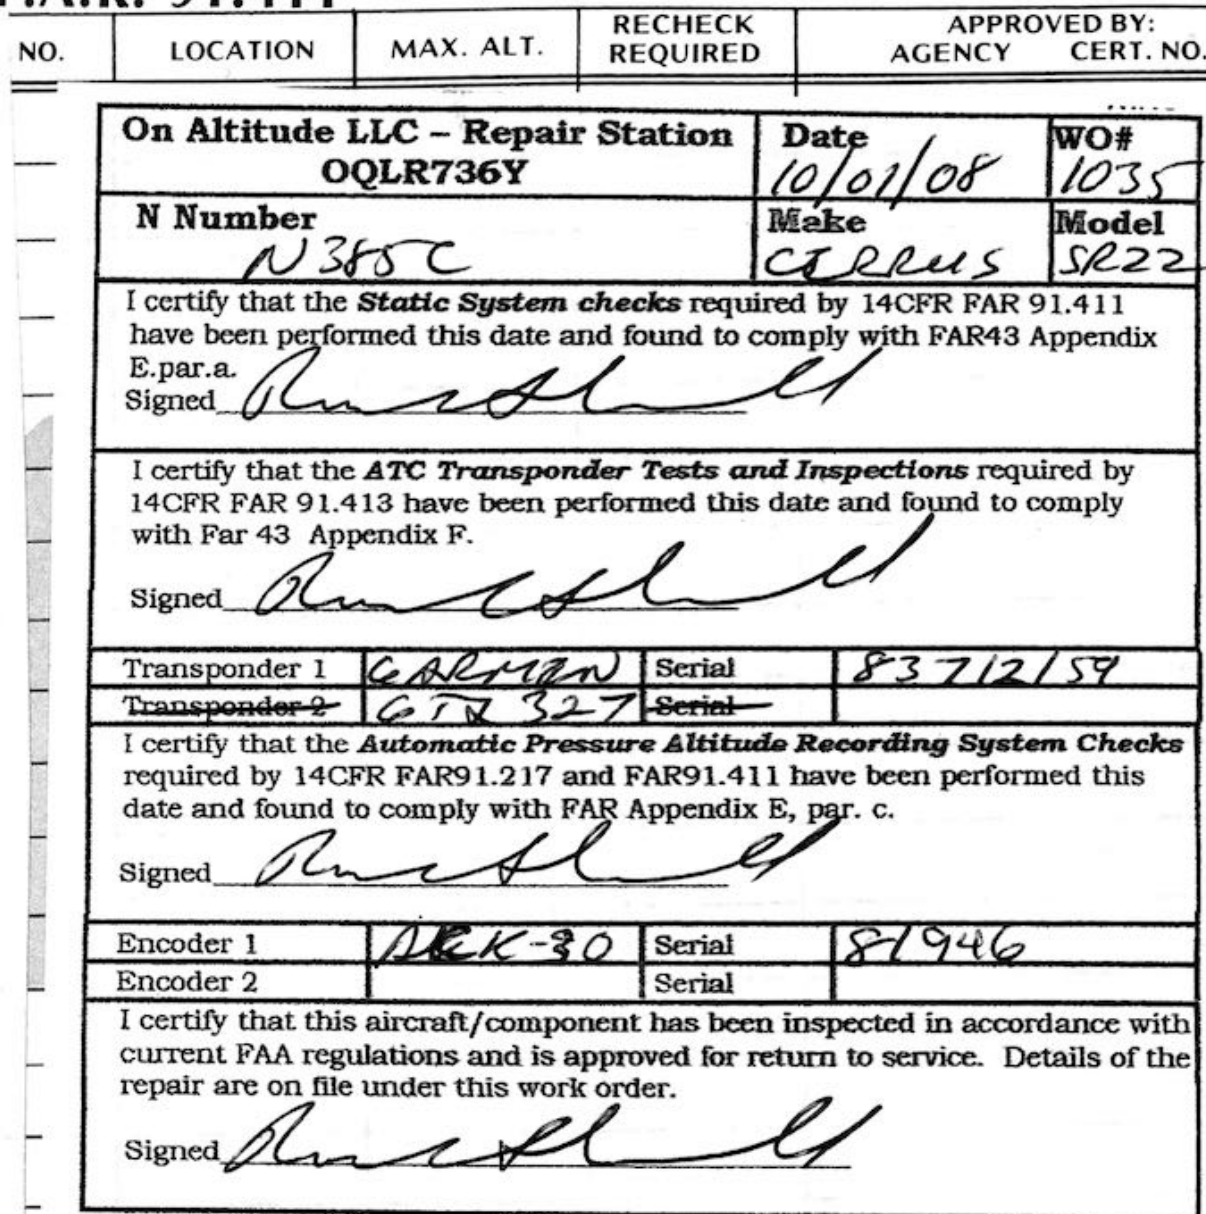 F.A.R. 91.411
NO. LOCATION MAX. ALT. RECHECK REQUIRED APPROVED BY: AGENCY CERT. NO.
On Altitude LLC – Repair Station
OQLR736Y
Date
10/01/08
WO#
1035
N Number
N385C
Make
CIRRUS
Model
SR22
I certify that the Static System checks required by 14CFR FAR 91.411
have been performed this date and found to comply with FAR43 Appendix
E.par.a.
Signed
I certify that the ATC Transponder Tests and Inspections required by
14CFR FAR 91.413 have been performed this date and found to comply
with Far 43 Appendix F.
Signed
Transponder 1 GARMIN Serial 83712159
Transponder 2 GTX 327 Serial
I certify that the Automatic Pressure Altitude Recording System Checks
required by 14CFR FAR91.217 and FAR91.411 have been performed this
date and found to comply with FAR Appendix E, par. c.
Signed
Encoder 1 Serial 81946
Encoder 2 Serial
I certify that this aircraft/component has been inspected in accordance with
current FAA regulations and is approved for return to service. Details of the
repair are on file under this work order.
Signed